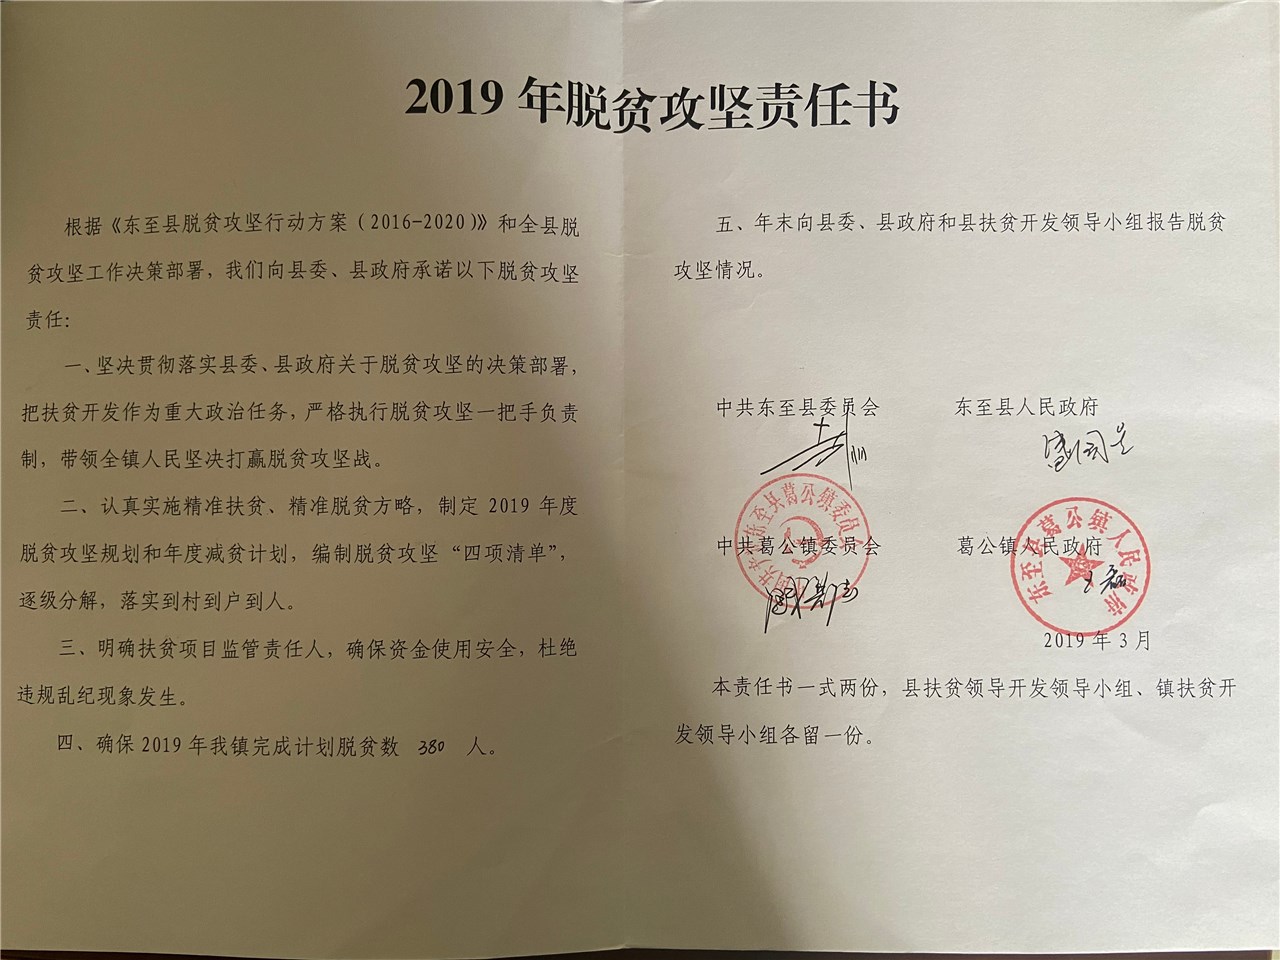 2019 年脱贫攻坚责任书
根据《东至县脱贫攻坚行动方案(2016-2020)》和全县脱
贫攻坚工作决策部署，我们向县委、县政府承诺以下脱贫攻坚
责任:
一、坚决贯彻落实县委、县政府关于脱贫攻坚的决策部署，
把扶贫开发作为重大政治任务，严格执行脱贫攻坚一把手负责
制，带领全镇人民坚决打赢脱贫攻坚战。
二、认真实施精准扶贫、精准脱贫方略，制定 2019 年度
脱贫攻坚规划和年度减贫计划，编制脱贫攻坚“四项清单”，
逐级分解，落实到村到户到人。
三、明确扶贫项目监管责任人，确保资金使用安全，杜绝
违规乱纪现象发生。
四、确保 2019 年我镇完成计划脱贫数 380 人。
五、年末向县委、县政府和县扶贫开发领导小组报告脱贫
攻坚情况。
中共东至县委员会 东至县人民政府
中共葛公镇委员会 葛公镇人民政府
东至县葛公镇人民政府
2019 年 3 月
本责任书一式两份，县扶贫领导开发领导小组、镇扶贫开
发领导小组各留一份。